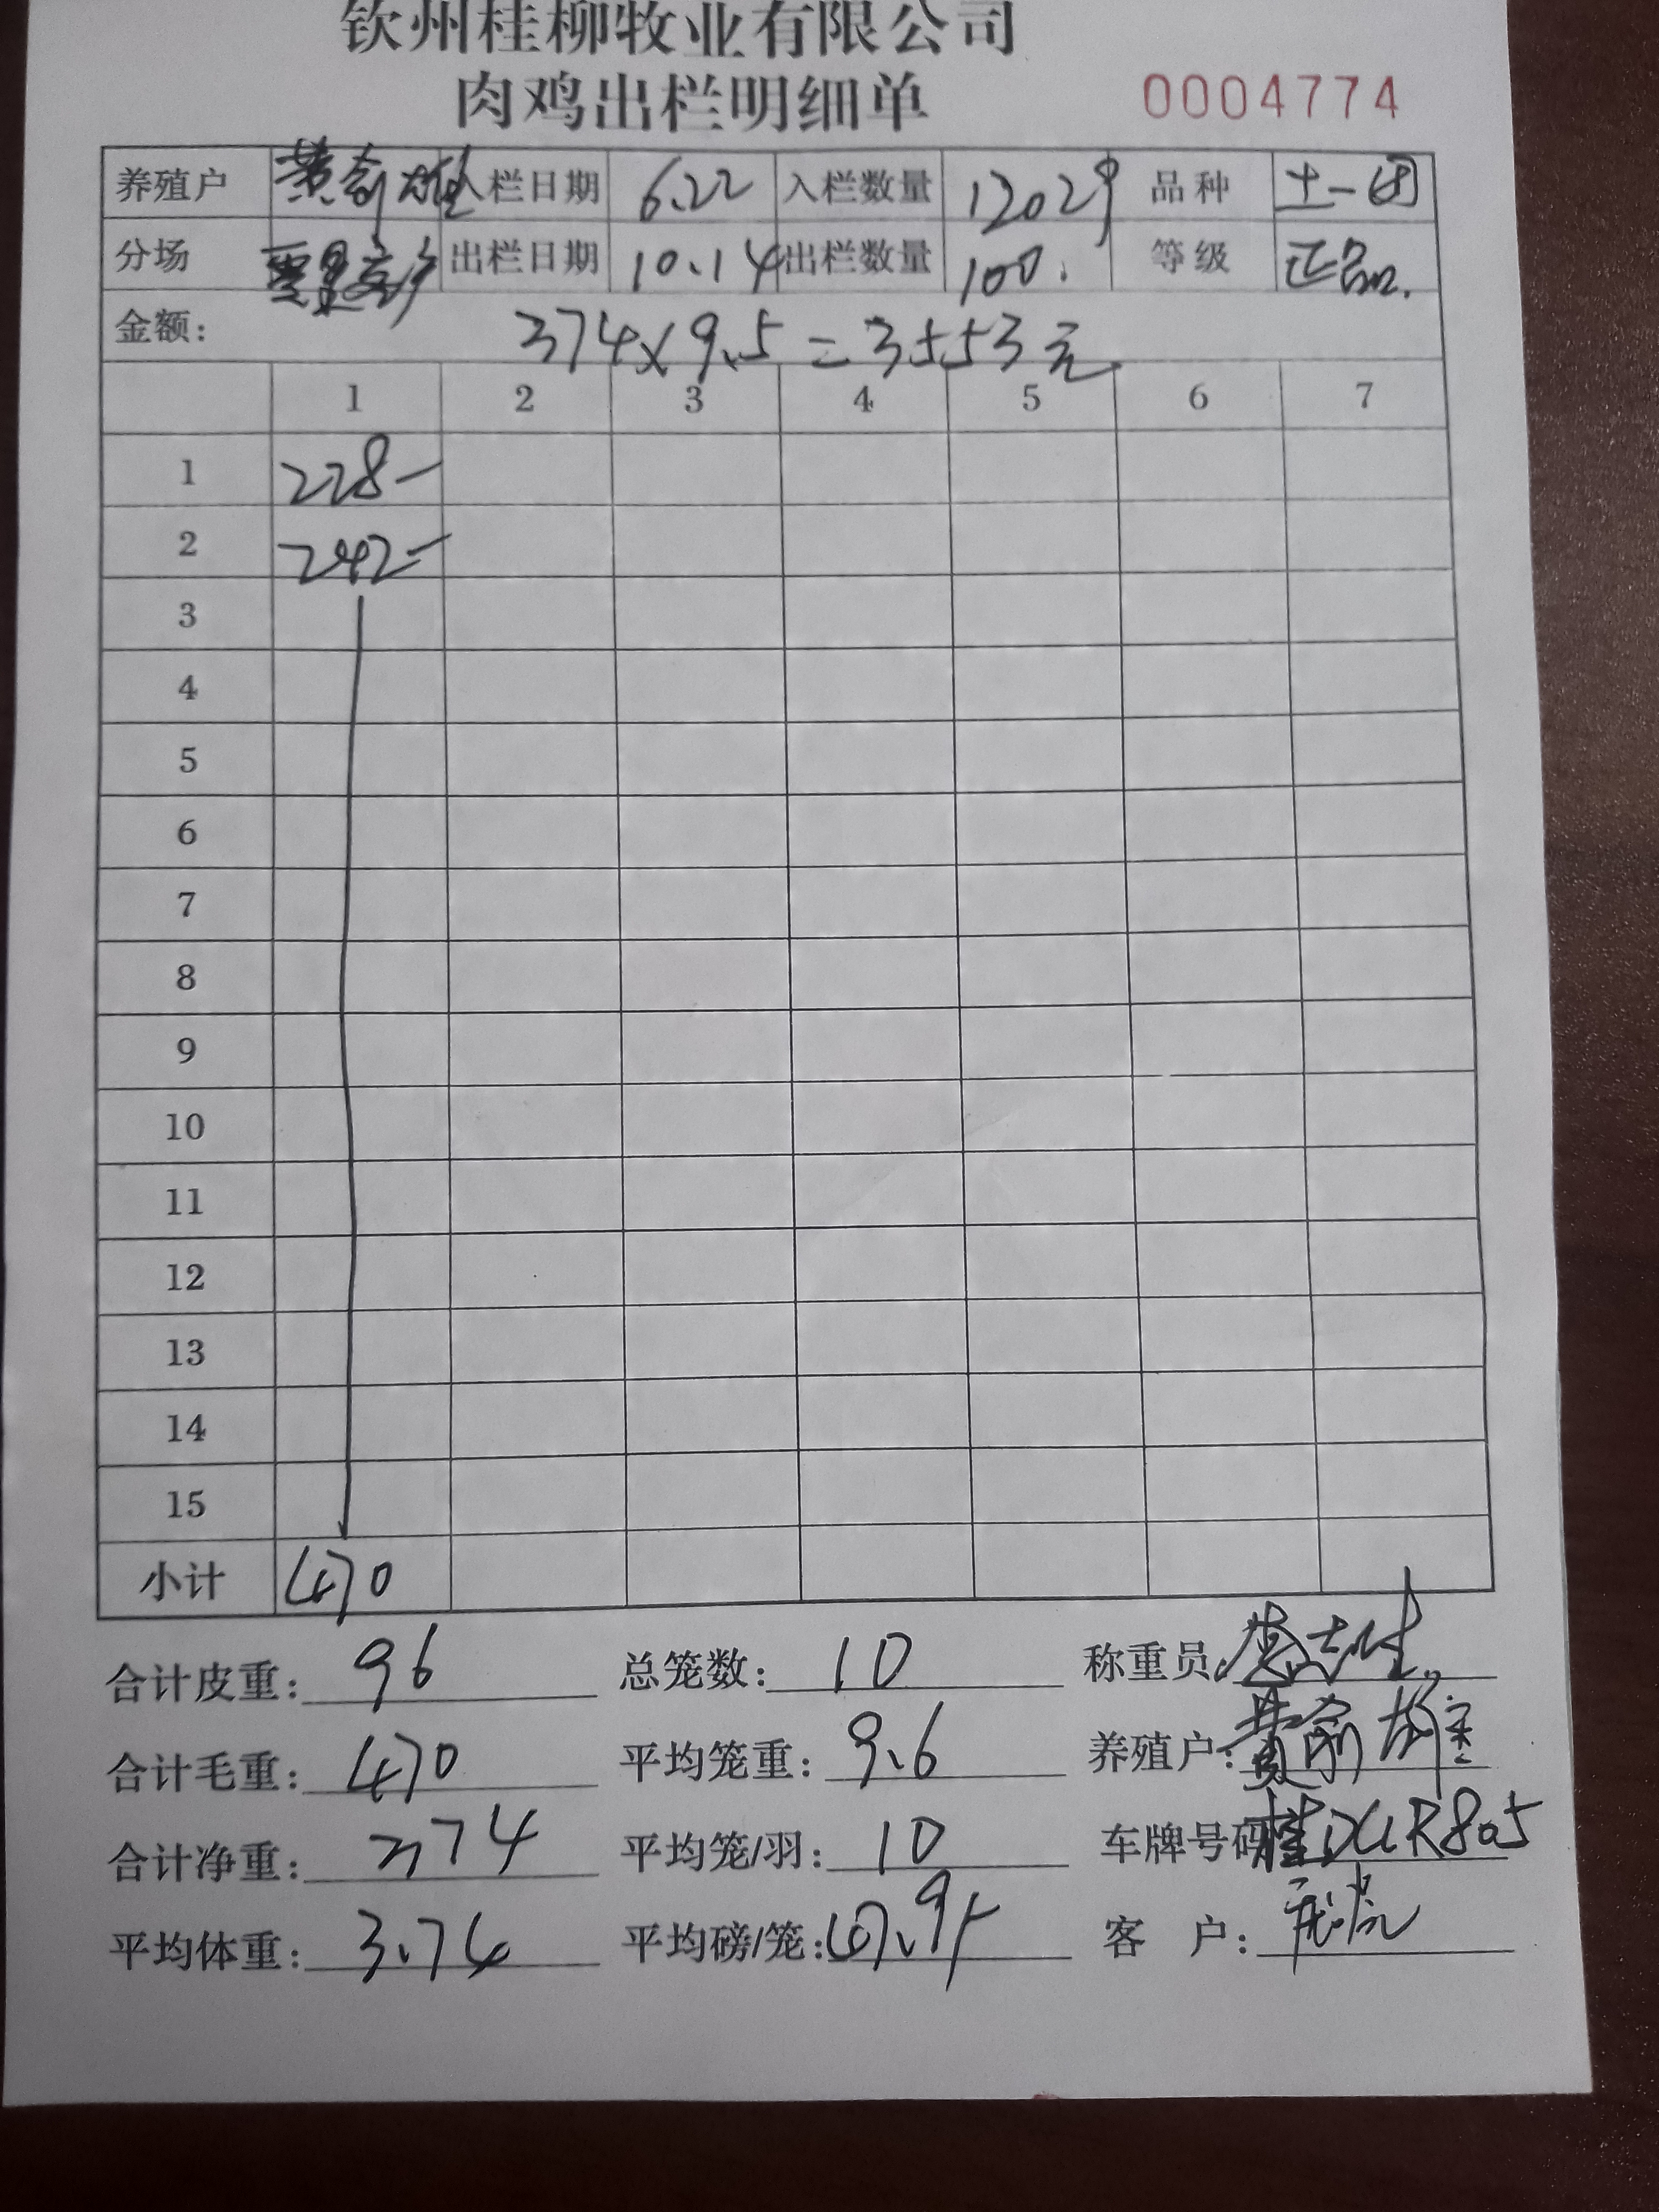 钦州桂柳牧业有限公司
肉鸡出栏明细单 0004774
养殖户 黄俞雄 入栏日期 6.22 入栏数量 12029 品种 土一
分场 出栏日期 10.14 出栏数量 100. 等级 正品.
金额: 374×9.5=3553元
1 2 3 4 5 6 7
1 228-
2 242-
3
4
5
6
7
8
9
10
11
12
13
14
15
小计 470
合计皮重: 96 总笼数: 10 称重员:
合计毛重: 470 平均笼重: 9.6 养殖户: 黄俞雄
合计净重: 374 平均笼/羽: 10 车牌号码: 805
平均体重: 3.74 平均磅/笼: 客 户: